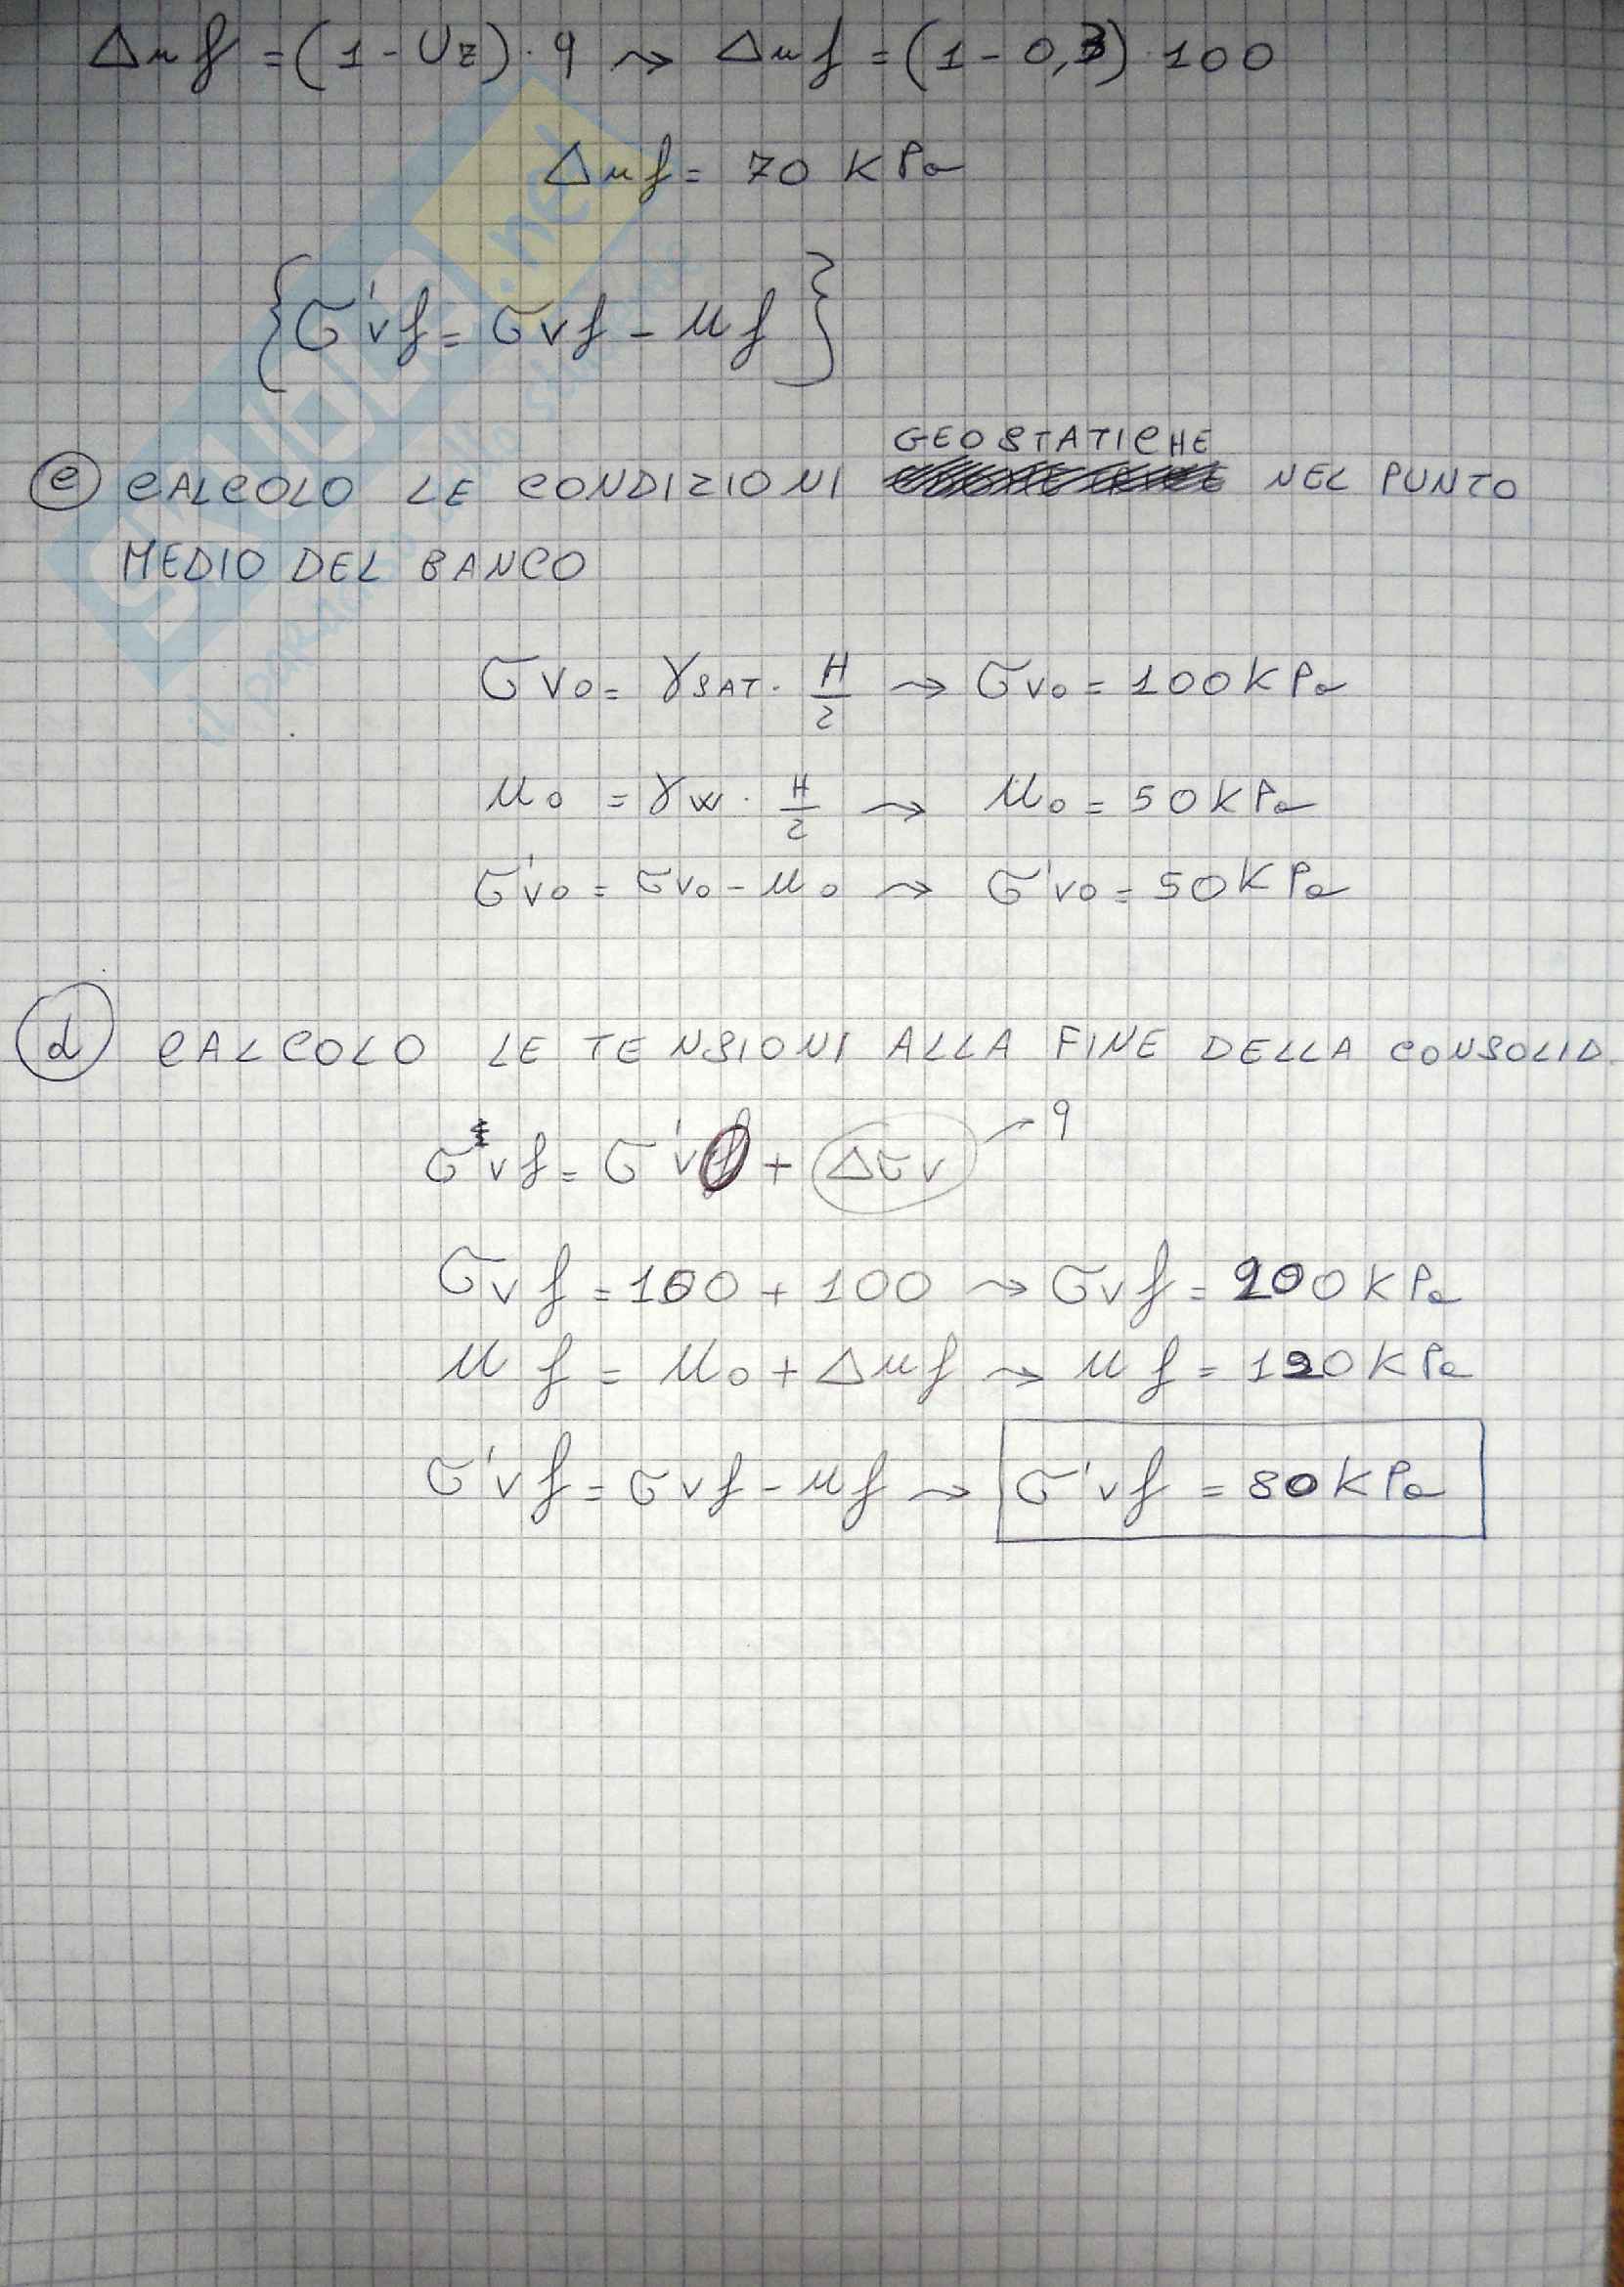 Δuf = (1 - Uz) · q ⇝ Δuf = (1 - 0,3) · 100
Δuf = 70 KPa
{σ'vf = σvf - uf}
GEOSTATICHE
c CALCOLO LE CONDIZIONI NEL PUNTO
MEDIO DEL BANCO
σvo = γSAT · H/2 → σvo = 100 KPa
uo = γw · H/2 ⇝ uo = 50 KPa
σ'vo = σvo - uo ⇝ σ'vo = 50 KPa
d CALCOLO LE TENSIONI ALLA FINE DELLA CONSOLID.
σvf = σ'v0 + Δσv → q
σvf = 100 + 100 ⇝ σvf = 200 KPa
uf = uo + Δuf ⇝ uf = 120 KPa
σ'vf = σvf - uf ⇝ σ'vf = 80 KPa
SKUOLA.net